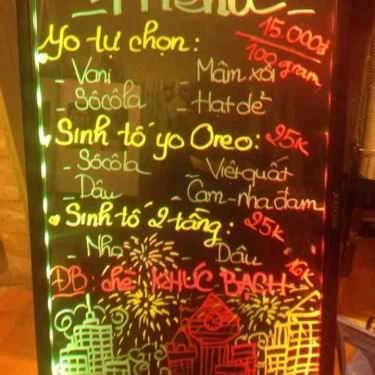 Menu
Yo tự chọn: 15.000đ/100gram
- Vani - Mâm xôi
- Sôcôla - Hạt dẻ
Sinh tố yo Oreo: 25K
- Sôcôla - Việt quất
- Dâu - Cam-nha đam
Sinh tố 2 tầng: 25K
- Nho - Dâu
ĐB: chè KHÚC BẠCH 16K